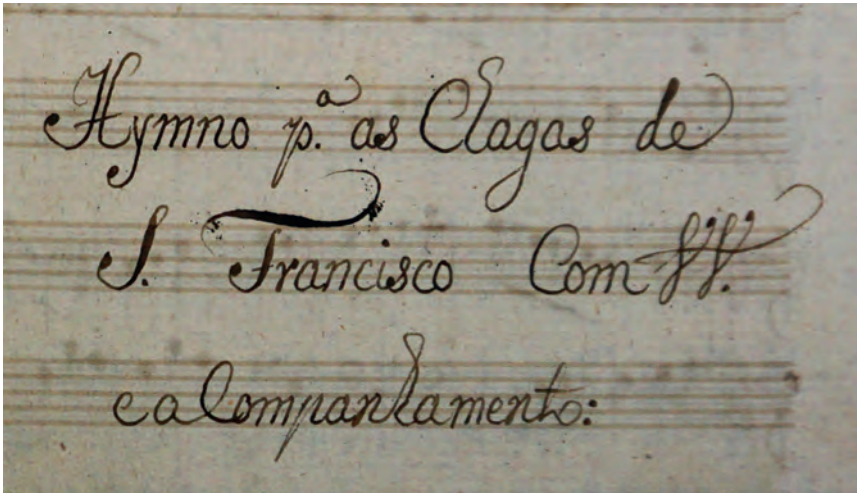 Hymno p.ª as Chagas de
S. Francisco Com VV.
e aCompanhamento: